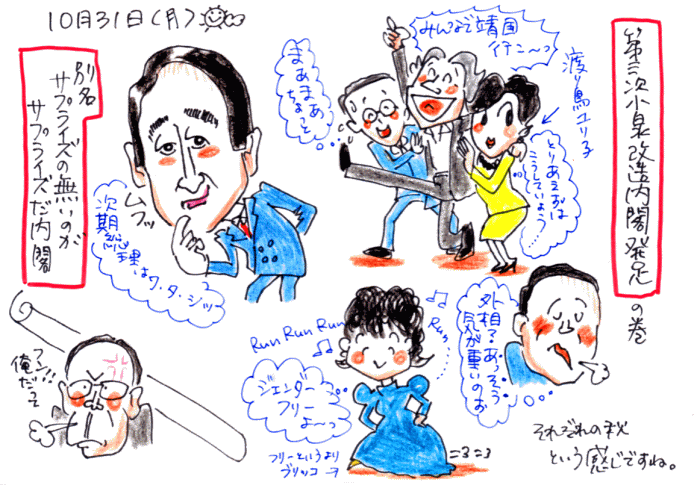 10月31日(月)
第三次小泉改造内閣発足の巻
別名
サプライズの無いのが
サプライズだ内閣
みんなで靖国
行こ〜っ
まあまあ
ちょっと…
渡り鳥ユリ子
とりあえずは
こうしていよう
……
ムフッ
次期
総理はワ・タ・シッ
Run Run Run
Run
ジェンダー
フリー
よ〜っ
フリーというより
ブリッコ
ニョニョ
外相?あっそう
気が重いのお
フン!!
俺だって
それぞれの秋
という感じですね。